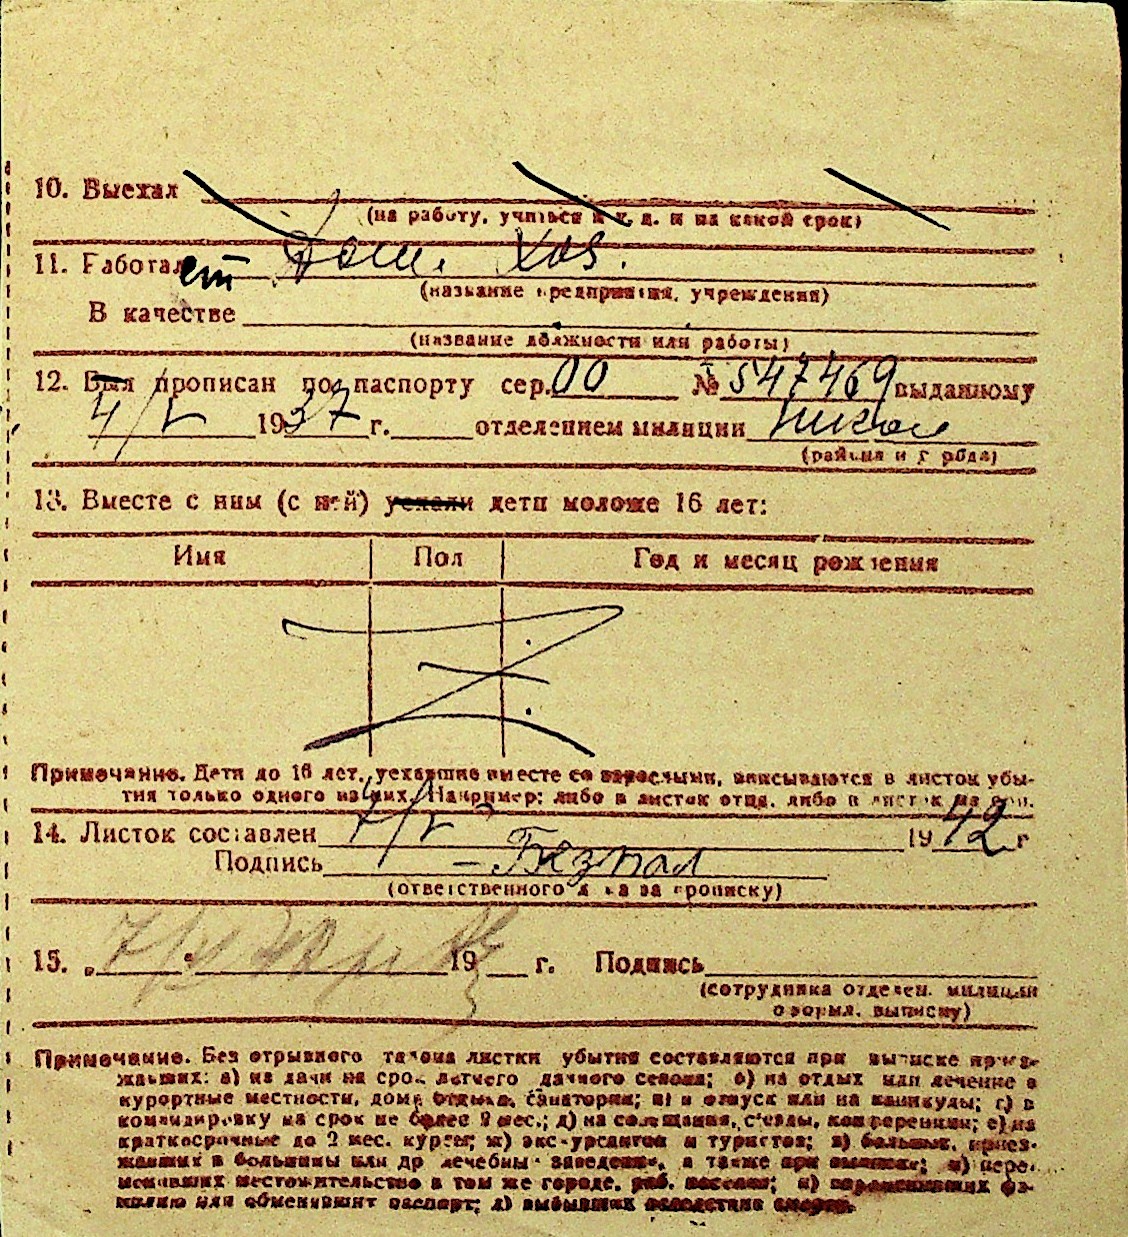 10. Выехал
(на работу, учиться и т. д. и на какой срок)
11. Работает Дом. Хоз.
(название предприятия, учреждения)
В качестве
(название должности или работы)
12. Был прописан по паспорту сер. 00 № 547469 выданному
4/V 1937 г. отделением милиции
(района и города)
13. Вместе с ним (с ней) уехали дети моложе 16 лет:
Имя Пол Год и месяц рождения
Z
Примечание. Дети до 16 лет, уехавшие вместе со взрослыми, вписываются в листок убы-
тия только одного из них. Например: либо в листок отца, либо в листок матери.
14. Листок составлен 7/V 1942 г
Подпись Безпал
(ответственного за прописку)
15. „ 7/ 19 г. Подпись
(сотрудника отделен. милиции
оформл. выписку)
Примечание. Без отрывного талона листки убытия составляются при выписке приез-
жавших: а) на дачи на срок летнего дачного сезона; б) на отдых или лечение в
курортные местности, дома отдыха, санатории; в) в отпуск или на каникулы; г) в
командировку на срок не более 2 мес.; д) на совещания, съезды, конференции; е) на
краткосрочные до 2 мес. курсы; ж) экскурсантов и туристов; з) больных, приез-
жавших в больницы или др лечебные заведения, а также при выписке; и) пере-
менивших местожительство в том же городе, раб. поселке; к) переменивших фа-
милию или обменивших паспорт; л) выбывших вследствие смерти.